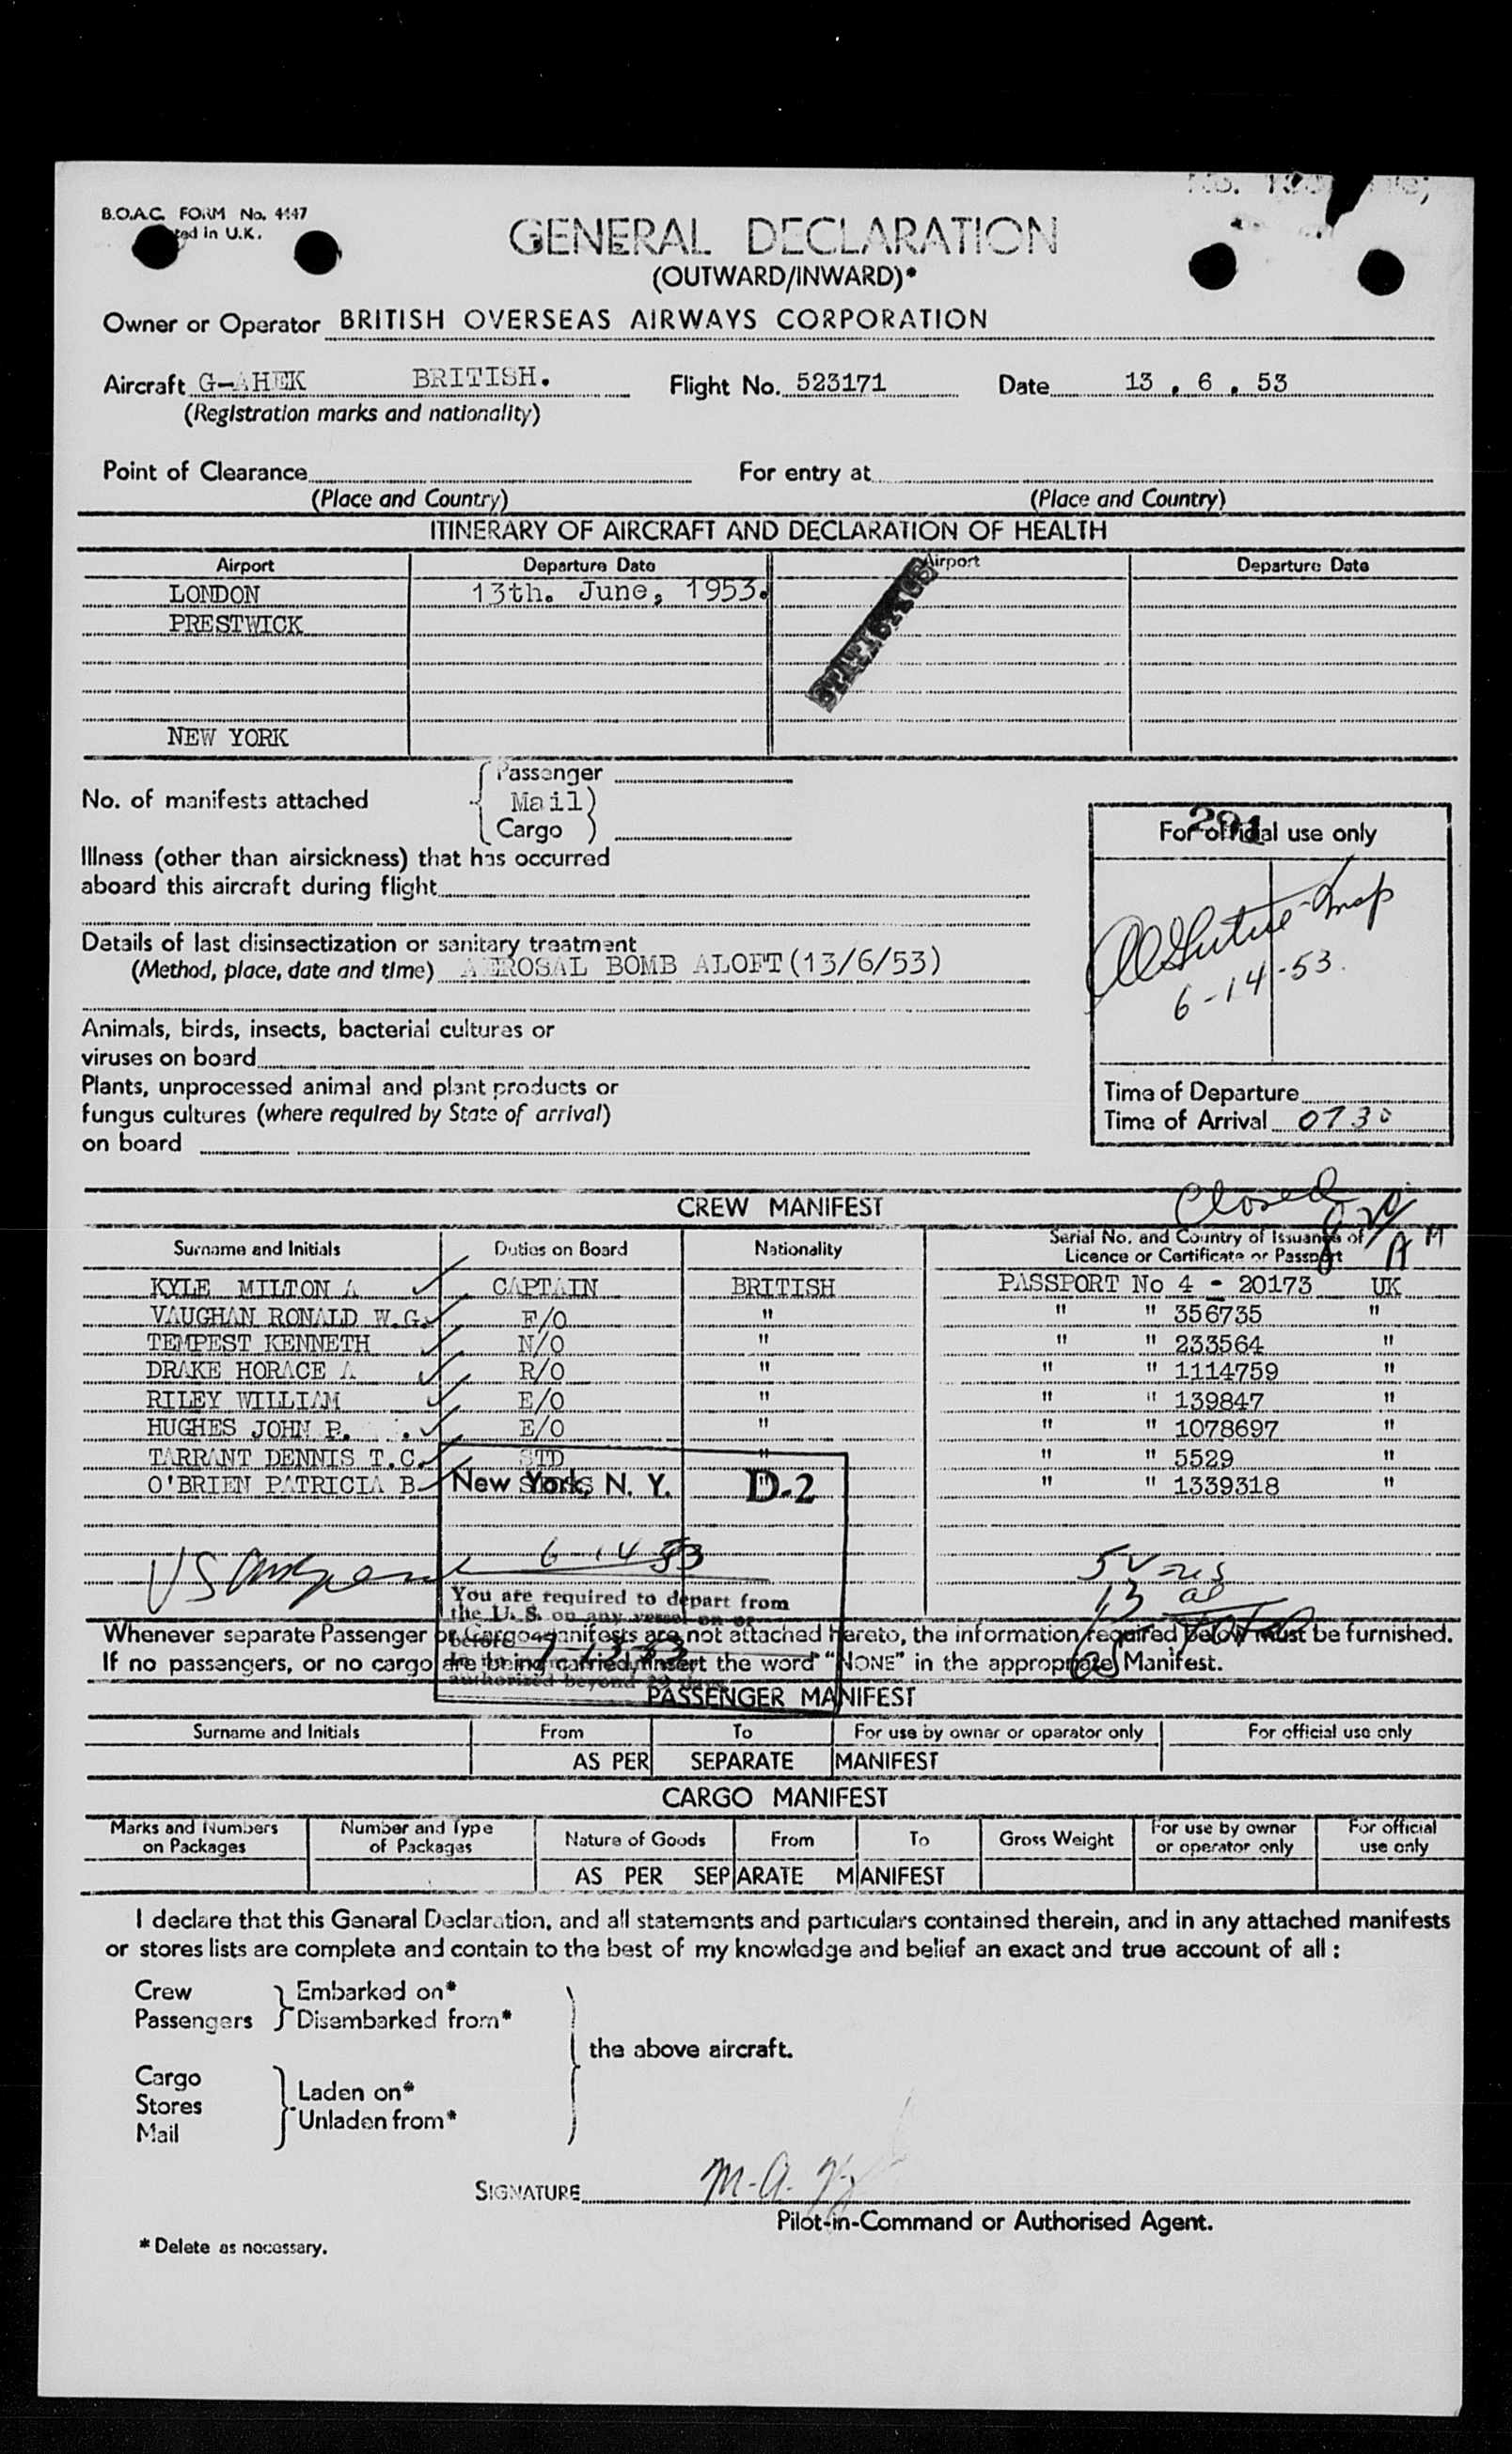 B.O.A.C. FORM No. 4447
ted in U.K.
GENERAL DECLARATION
(OUTWARD/INWARD)*
Owner or Operator BRITISH OVERSEAS AIRWAYS CORPORATION
Aircraft G-AHEK BRITISH. Flight No. 523171 Date 13 . 6 . 53
(Registration marks and nationality)
Point of Clearance For entry at
(Place and Country) (Place and Country)
ITINERARY OF AIRCRAFT AND DECLARATION OF HEALTH
Airport Departure Date Airport Departure Date
LONDON 13th. June, 1953.
PRESTWICK
STATISTICS
NEW YORK
Passenger
No. of manifests attached Mail)
Cargo )
291
For official use only
Illness (other than airsickness) that has occurred
aboard this aircraft during flight
Details of last disinsectization or sanitary treatment
(Method, place, date and time) AEROSAL BOMB ALOFT(13/6/53)
6-14-53.
Animals, birds, insects, bacterial cultures or
viruses on board
Plants, unprocessed animal and plant products or
fungus cultures (where required by State of arrival)
on board
Time of Departure
Time of Arrival 0730
Closed
CREW MANIFEST
Surname and Initials Duties on Board Nationality Serial No. and Country of Issuance of Licence or Certificate or Passport
KYLE MILTON A CAPTAIN BRITISH PASSPORT No 4 - 20173 UK
VAUGHAN RONALD W.G. F/O " " " 356735 "
TEMPEST KENNETH N/O " " " 233564 "
DRAKE HORACE A R/O " " " 1114759 "
RILEY WILLIAM E/O " " " 139847 "
HUGHES JOHN P. E/O " " " 1078697 "
TARRANT DENNIS T.C. STD " " " 5529 "
O'BRIEN PATRICIA B STDSS " " " 1339318 "
New York, N. Y. D-2
6 14 53
You are required to depart from
the U. S. on any vessel on or
before 7-13-53
authorized beyond 29 days
Whenever separate Passenger or Cargo manifests are not attached hereto, the information required below must be furnished.
If no passengers, or no cargo are being carried, insert the word "NONE" in the appropriate Manifest.
PASSENGER MANIFEST
Surname and Initials From To For use by owner or operator only For official use only
AS PER SEPARATE MANIFEST
CARGO MANIFEST
Marks and Numbers on Packages Number and Type of Packages Nature of Goods From To Gross Weight For use by owner or operator only For official use only
AS PER SEPARATE MANIFEST
I declare that this General Declaration, and all statements and particulars contained therein, and in any attached manifests
or stores lists are complete and contain to the best of my knowledge and belief an exact and true account of all :
Crew Embarked on*
Passengers Disembarked from*
the above aircraft.
Cargo
Stores Laden on*
Mail Unladen from*
SIGNATURE M.A.
Pilot-in-Command or Authorised Agent.
* Delete as necessary.